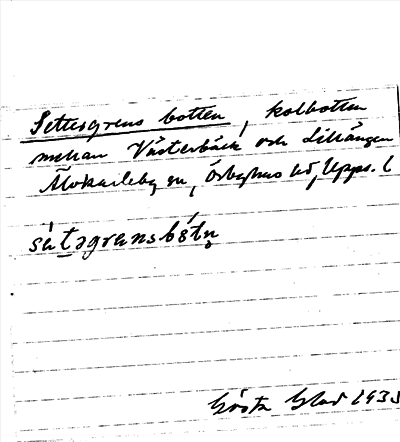 Settergrens botten, kolbotten
mellan Västerbäck och Lillängen
Älvkarleby sn, Örbyhus hd, Upps. l
Gösta Blad 193